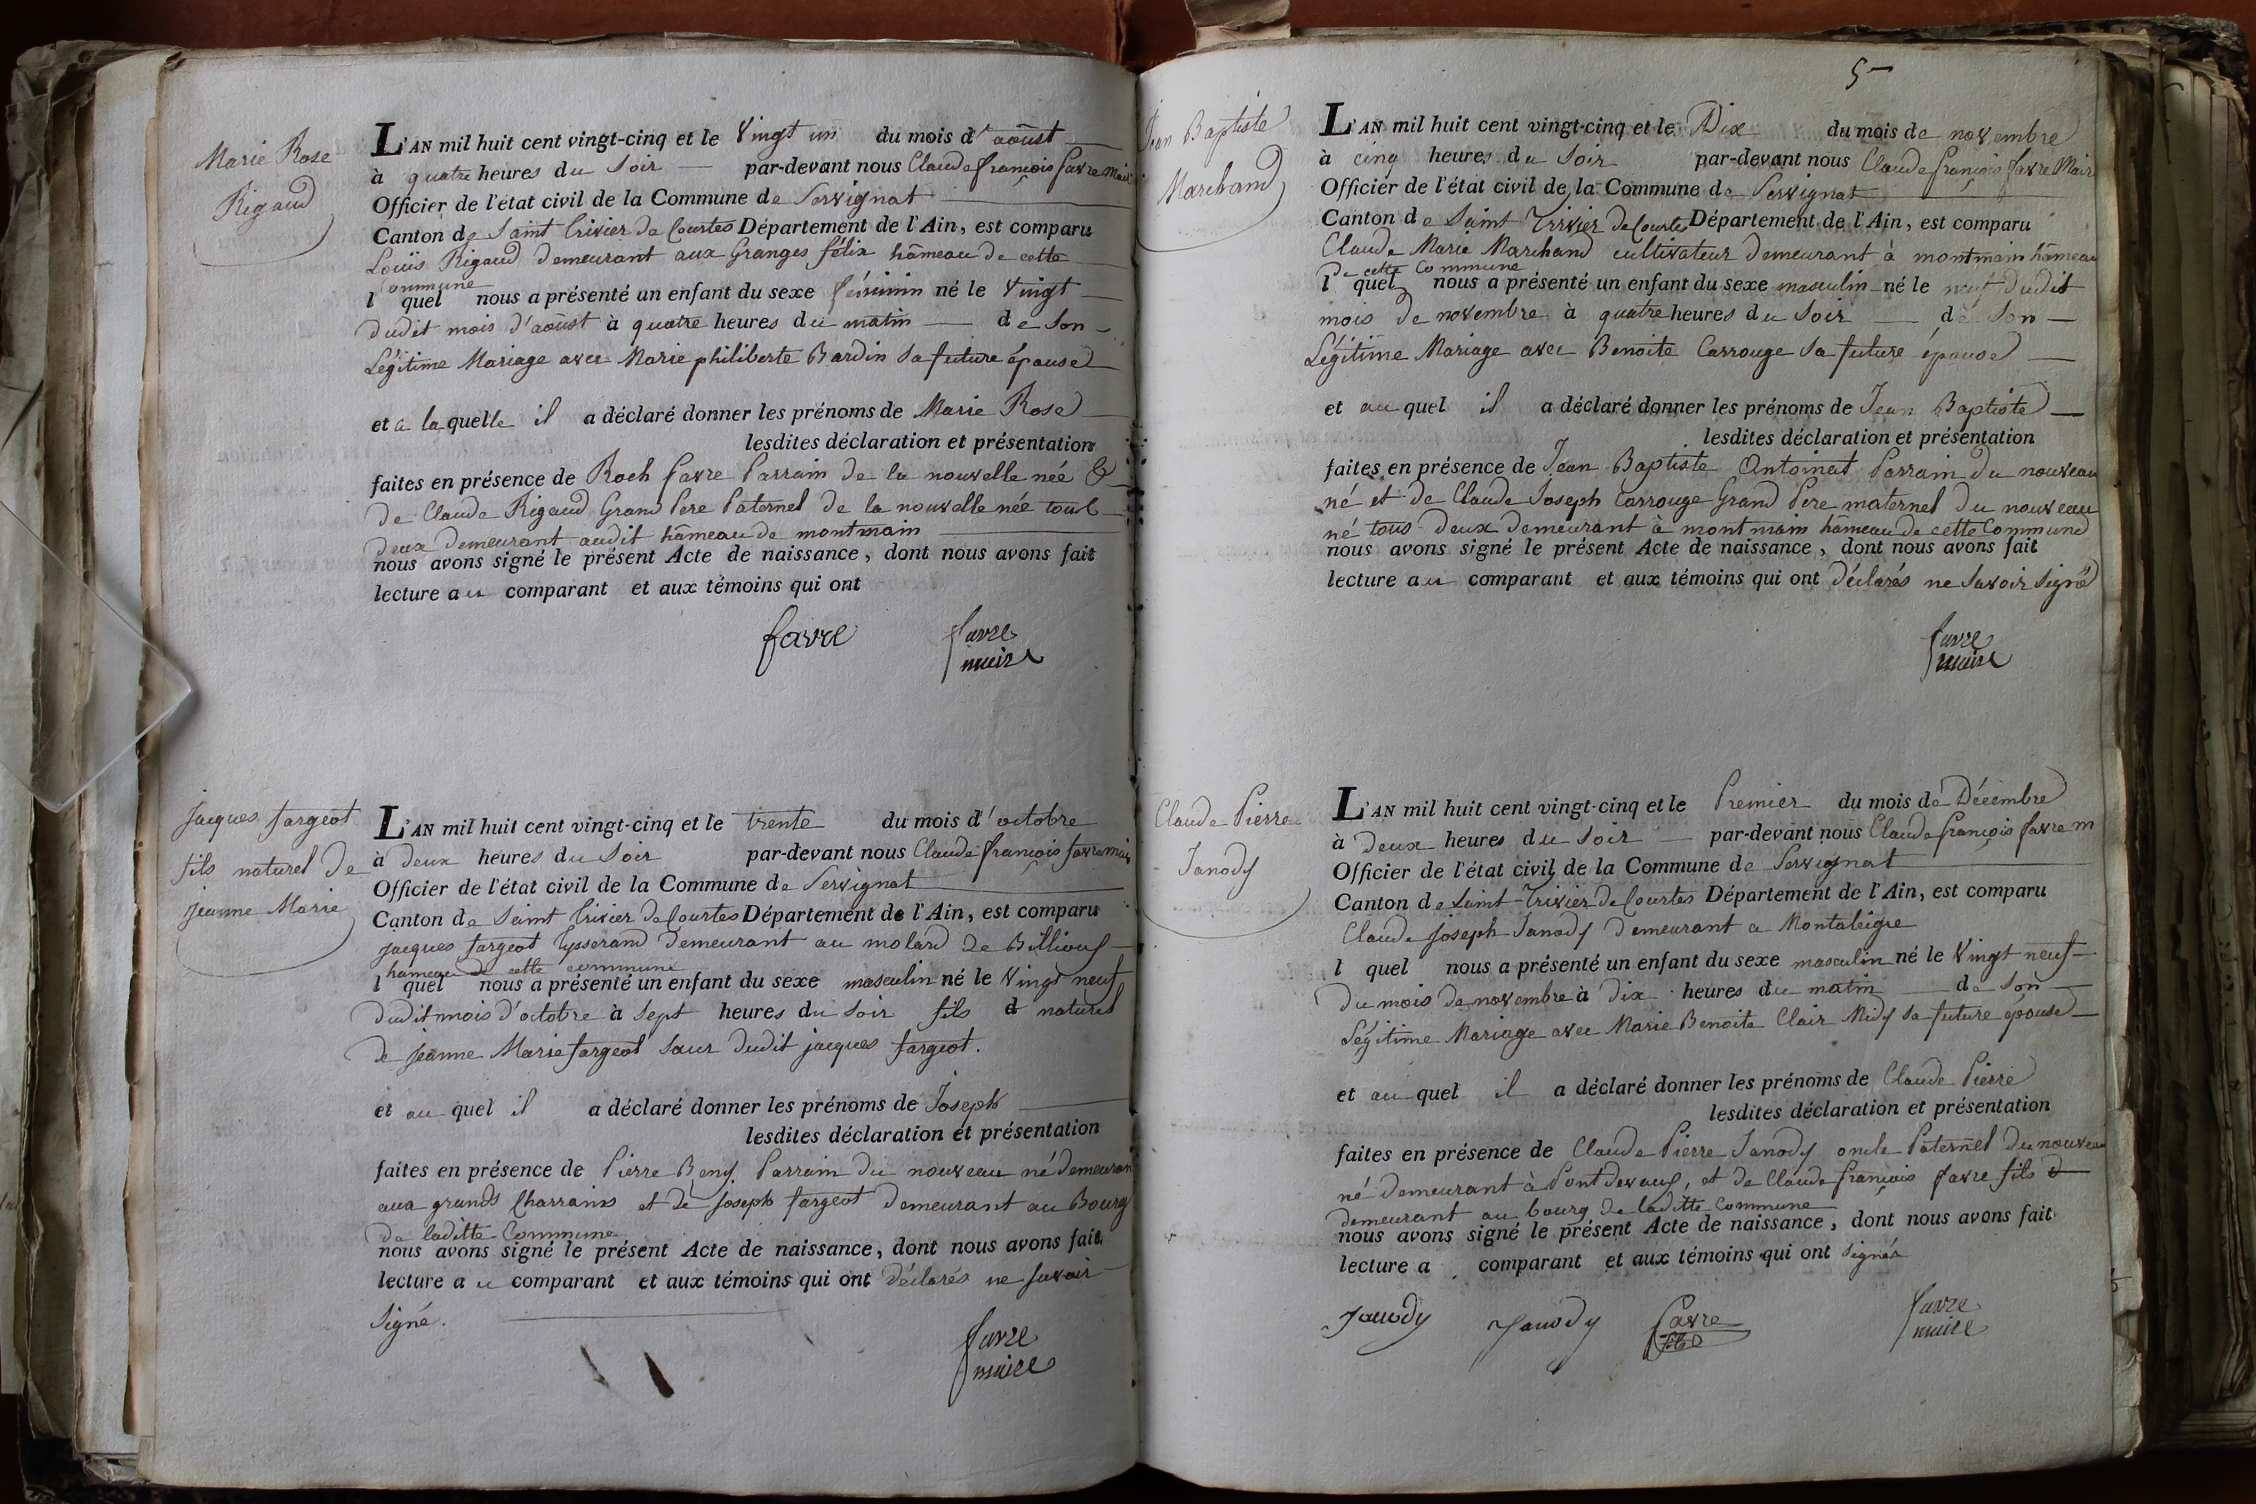 Marie Rose
Rigaud
L'AN mil huit cent vingt-cinq et le Vingt un du mois d'aoûst
à quatre heures du Soir par-devant nous Claude françois favre Mair
Officier de l'état civil de la Commune de Servignat
Canton de Saint Trivier de Courtes Département de l'Ain, est comparu
Louis Rigaud demeurant aux Granges félix hâmeau de cette
Commune
l quel nous a présenté un enfant du sexe féminin né le Vingt
dudit mois d'aoûst à quatre heures du matin de Son
Légitime Mariage avec Marie philiberte Bardin Sa future épouse
et a la quelle il a déclaré donner les prénoms de Marie Rose
lesdites déclaration et présentation
faites en présence de Roch favre Parrain de la nouvelle née &
de Claude Rigaud Grand Pere Paternel de la nouvelle née tous
deux demeurant audit hâmeau de montmain
nous avons signé le présent Acte de naissance, dont nous avons fait
lecture au comparant et aux témoins qui ont
favre favre
maire
jacques fargeot
fils naturel De
jeanne Marie
L'AN mil huit cent vingt-cinq et le trente du mois d'octobre
à Deux heures du Soir par-devant nous Claude françois favre mair
Officier de l'état civil de la Commune de Servignat
Canton de Saint Trivier de Courtes Département de l'Ain, est comparu
jacques fargeot tysserand Demeurant au molard De
hameau de cette commune
l quel nous a présenté un enfant du sexe masculin né le Vingt neuf
dudit mois d'octobre à Sept heures du Soir fils d naturel
de jeanne Marie fargeot Sœur dudit jacques fargeot.
et au quel il a déclaré donner les prénoms de Joseph
lesdites déclaration et présentation
faites en présence de Pierre Parrain du nouveau né demeuran
aux grands Charrains et de joseph fargeot Demeurant au Bourg
De laditte Commune
nous avons signé le présent Acte de naissance, dont nous avons fait
lecture au comparant et aux témoins qui ont Déclarés ne Savoir
Signé.
favre
maire
5
Jean Baptiste
Marchand
L'AN mil huit cent vingt-cinq et le Dix du mois de novembre
à cinq heures du Soir par-devant nous Claude françois favre Mair
Officier de l'état civil de la Commune de Servignat
Canton de Saint Trivier de Courtes Département de l'Ain, est comparu
Claude Marie Marchand cultivateur Demeurant à montmain hâmeau
De cette Commune
l quel nous a présenté un enfant du sexe masculin né le neuf dudit
mois De novembre à quatre heures du Soir de Son
Légitime Mariage avec Benoite Carrouge Sa future épouse
et au quel il a déclaré donner les prénoms de Jean Baptiste
lesdites déclaration et présentation
faites en présence de Jean Baptiste Antoinat Parrain du nouveau
né et de Claude Joseph Carrouge Grand Pere maternel Du nouveau
né tous deux demeurant à montmain hâmeau de cette Commune
nous avons signé le présent Acte de naissance, dont nous avons fait
lecture au comparant et aux témoins qui ont Déclarés ne Savoir Signé
favre
maire
Claude Pierre
Janody
L'AN mil huit cent vingt-cinq et le Premier du mois de Décembre
à Deux heures du Soir par-devant nous Claude françois favre m
Officier de l'état civil de la Commune de Servignat
Canton de Saint Trivier de Courtes Département de l'Ain, est comparu
Claude joseph Janody Demeurant a Montaleigre
l quel nous a présenté un enfant du sexe masculin né le Vingt neuf
Du mois de novembre à Dix heures du matin de Son
Légitime Mariage avec Marie Benoite Clair Midy sa future épouse
et au quel il a déclaré donner les prénoms de Claude Pierre
lesdites déclaration et présentation
faites en présence de Claude Pierre Janody oncle Paternel Du nouveau
né demeurant à Pontdevaux, et de Claude françois favre fils d
demeurant au bourg de laditte Commune
nous avons signé le présent Acte de naissance, dont nous avons fait
lecture a comparant et aux témoins qui ont Signés
Janody Janody favre
fils favre
maire